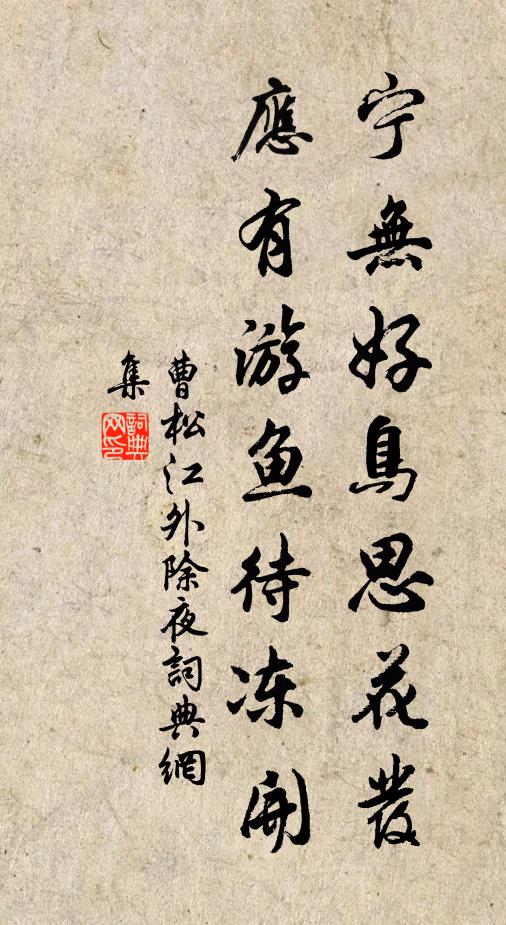 宁無好鳥思花發
應有游鱼待冻開
曹松江外除夜詞典網
集
詞典網印